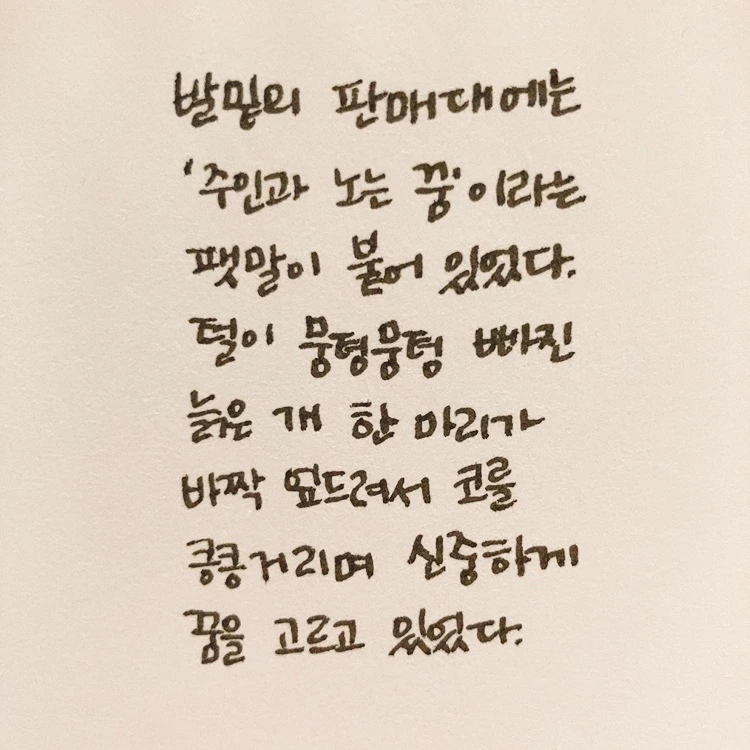 발밑의 판매대에는
'주인과 노는 꿈'이라는
팻말이 붙어 있었다.
털이 뭉텅뭉텅 빠진
늙은 개 한 마리가
바짝 엎드려서 코를
킁킁거리며 신중하게
꿈을 고르고 있었다.